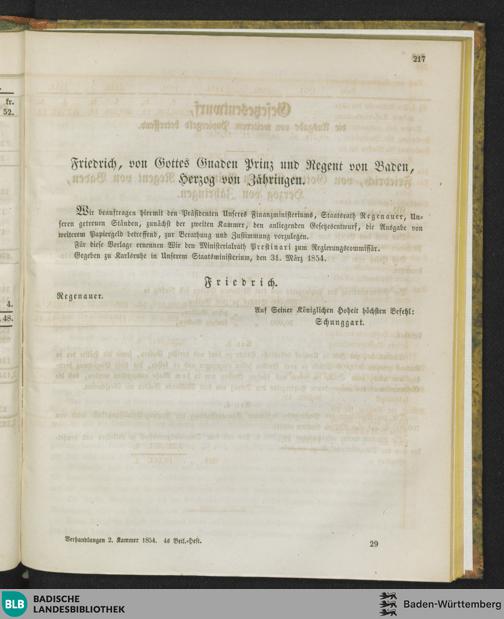 217
fr.
52.
4.
48.
Friedrich, von Gottes Gnaden Prinz und Regent von Baden,
Herzog von Zähringen.
Wir beauftragen hiermit den Präsidenten Unseres Finanzministeriums, Staatsrath Regenauer, Un-
seren getreuen Ständen, zunächst der zweiten Kammer, den anliegenden Gesetzesentwurf, die Ausgabe von
weiterem Papiergeld betreffend, zur Berathung und Zustimmung vorzulegen.
Für diese Vorlage ernennen Wir den Ministerialrath Prestinari zum Regierungscommissär.
Gegeben zu Karlsruhe in Unserem Staatsministerium, den 31. März 1854.
Friedrich.
Regenauer.
Auf Seiner Königlichen Hoheit höchsten Befehl:
Schunggart.
Verhandlungen 2. Kammer 1854. 4s Beil.-Heft.
29
BLB BADISCHE
LANDESBIBLIOTHEK
Baden-Württemberg